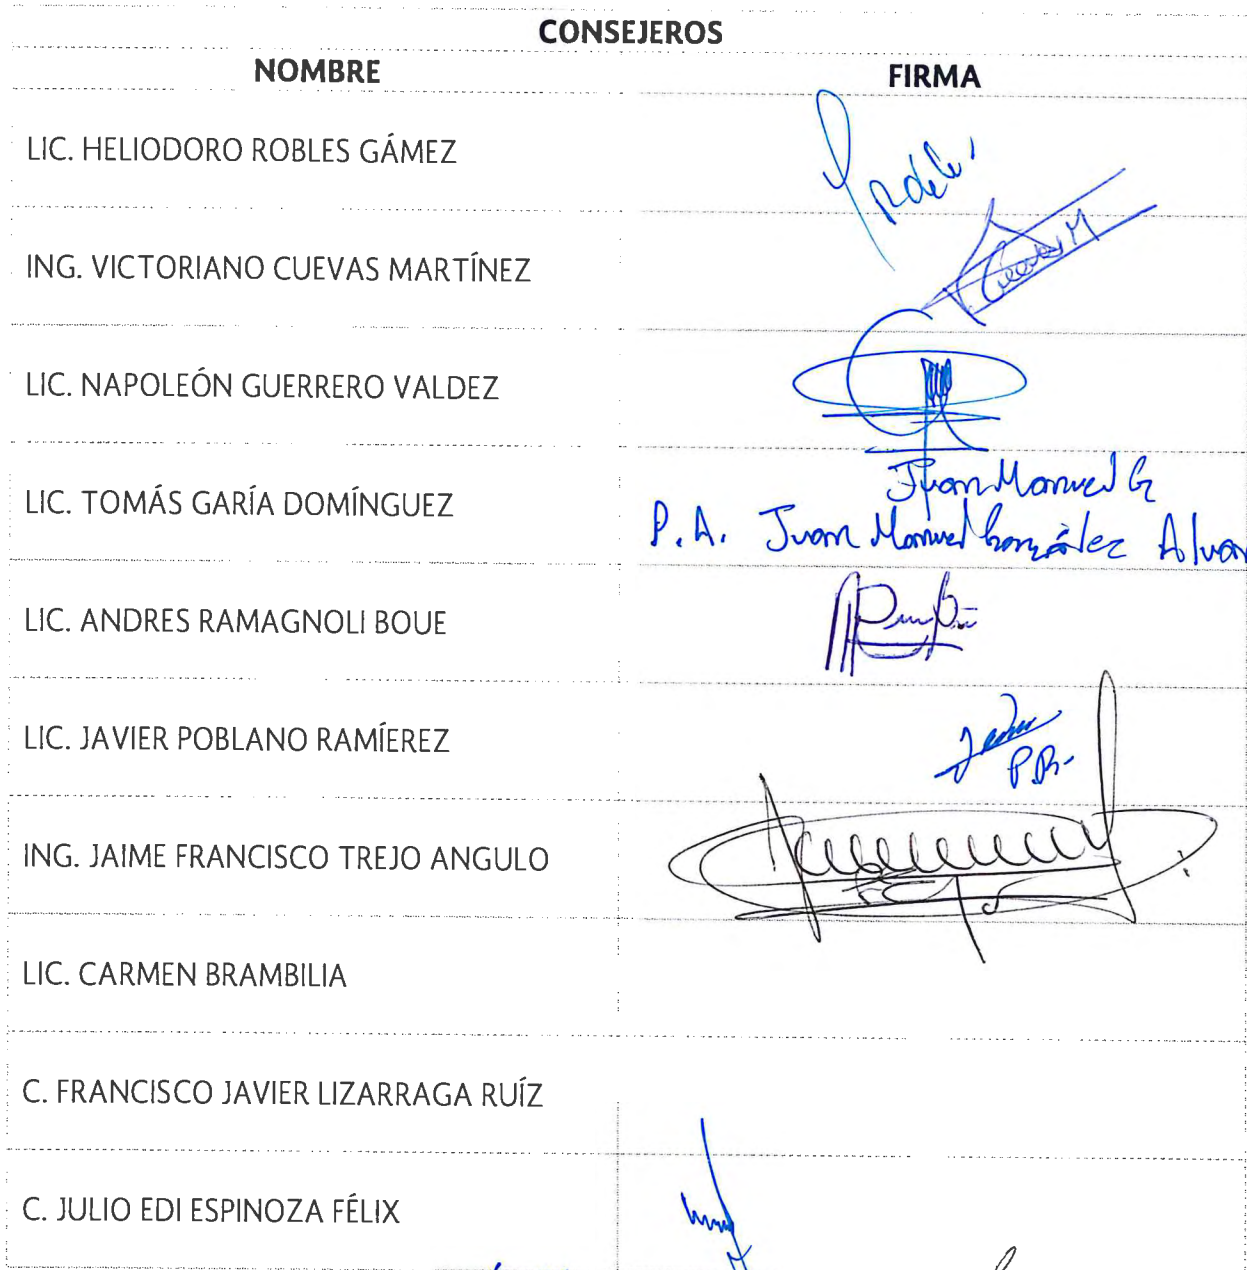 CONSEJEROS
NOMBRE FIRMA
LIC. HELIODORO ROBLES GÁMEZ
ING. VICTORIANO CUEVAS MARTÍNEZ
LIC. NAPOLEÓN GUERRERO VALDEZ
Juan Manuel G
LIC. TOMÁS GARÍA DOMÍNGUEZ
P.A. Juan Manuel González Alvar
LIC. ANDRES RAMAGNOLI BOUE
LIC. JAVIER POBLANO RAMÍEREZ
P.R.
ING. JAIME FRANCISCO TREJO ANGULO
LIC. CARMEN BRAMBILIA
C. FRANCISCO JAVIER LIZARRAGA RUÍZ
C. JULIO EDI ESPINOZA FÉLIX